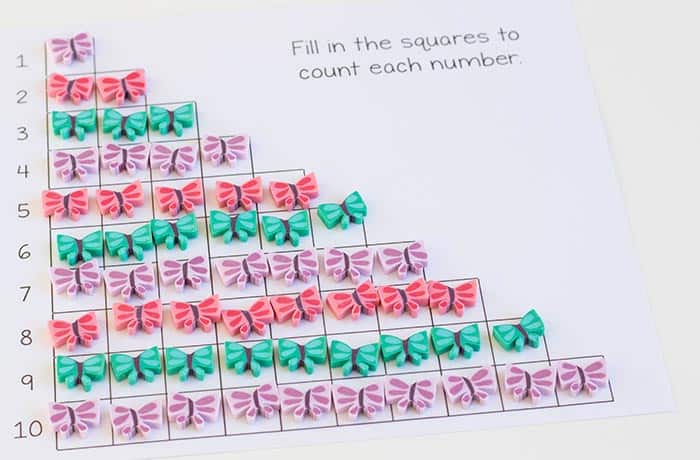 Fill in the squares to
count each number.
1
2
3
4
5
6
7
8
9
10